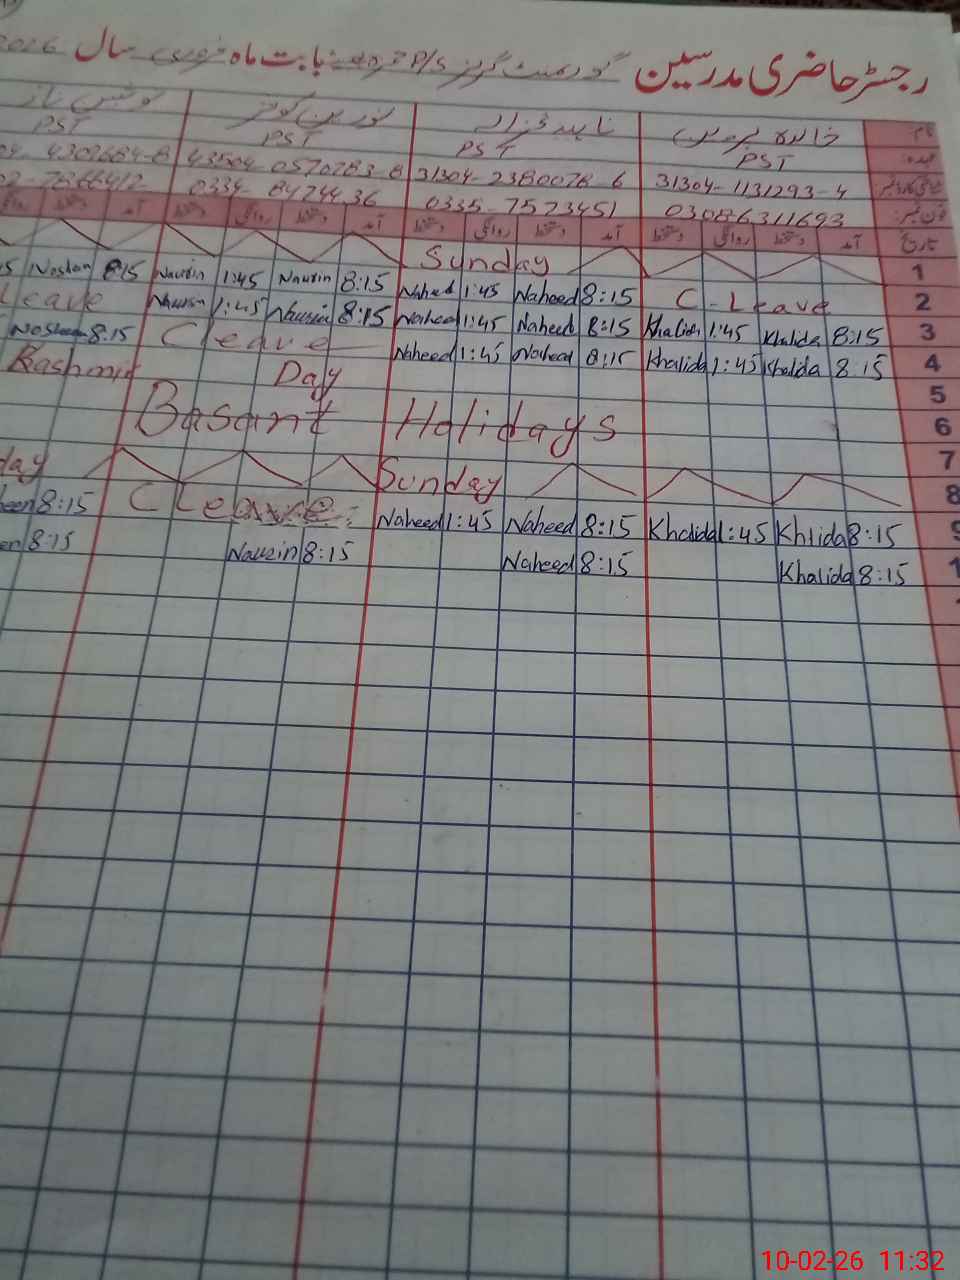 رجسٹر حاضری مدرسین گورنمنٹ گرلز P/S بابت ماہ فروری سال 2026
نام خالدہ پروین ناہید غزالہ نورین کوثر نوشین ناز
عہدہ PST PST PST PST
شناختی کارڈ نمبر 31304-1131293-4 31304-2380078-6 43504-0570783-8 4302684-8
فون نمبر 03086311693 0335-7573451 0334-8474436 7866412
تاریخ آمد دستخط روانگی دستخط آمد دستخط روانگی دستخط آمد دستخط روانگی دستخط آمد دستخط
1 Sunday
2 C-Leave 8:15 Naheed 1:45 Naheed 8:15 Naurin 1:45 Naurin 8:15 Noshen
3 8:15 Khalida 1:45 Khalida 8:15 Naheed 1:45 Naheed 8:15 Naurin 1:45 Naurin Leave
4 8:15 Khalida 1:45 Khalida 8:15 Naheed 1:45 Naheed C leave 8:15 Nosheen
5 Kashmir Day
6 Basant Holidays
7
8 Sunday day
9 8:15 Khlida 1:45 Khalida 8:15 Naheed 1:45 Naheed C Leave 8:15 een
1 8:15 Khalida 8:15 Naheed 8:15 Nauzin 8:15 en
10-02-26 11:32